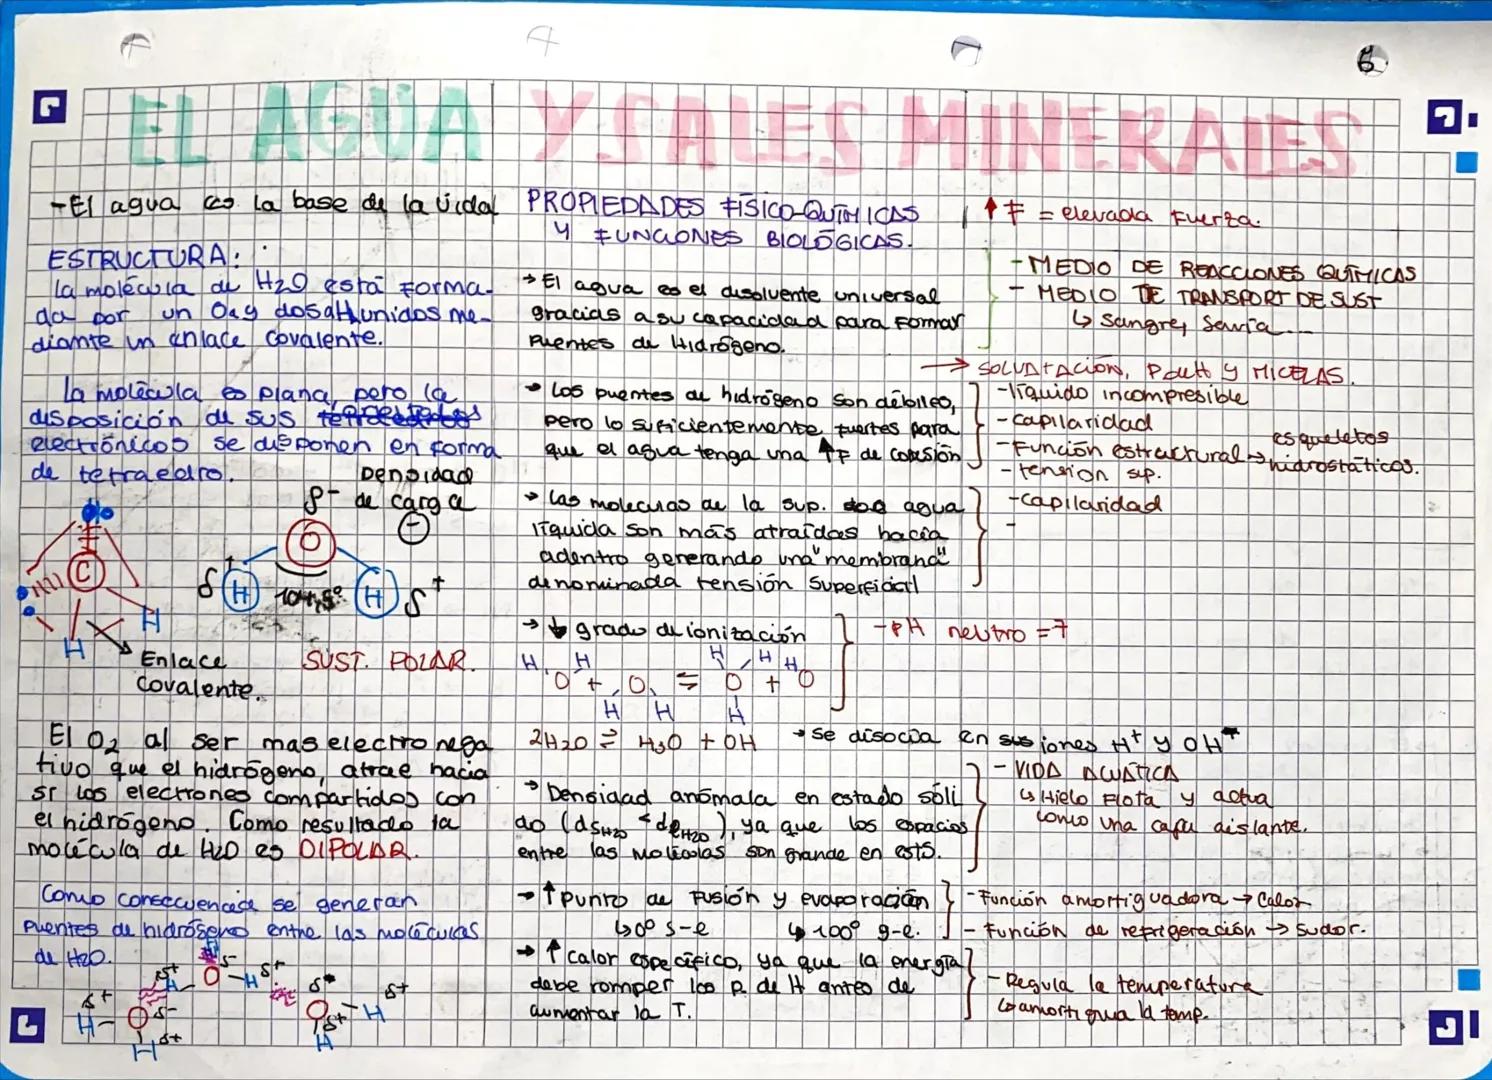 EL AGUA Y SALES MINERALES
-El agua es la base de la vida
ESTRUCTURA:
La molécula de H2O está forma-
da por un O a y dos a H unidos me-
diante un enlace covalente.
La molécula es plana, pero la
disposición de sus
electrónicos se disponen en forma
de tetraedro.
Densidad
de carga
δ-
O
δ+
H
104,5º
H
δ+
C
H
H
Enlace
covalente.
SUST. POLAR.
El O2 al ser mas electronega
tivo que el hidrógeno, atrae hacia
sí los electrones compartidos con
el hidrógeno. Como resultado la
molécula de H2O es DIPOLAR.
Como consecuencia se generan
puentes de hidrógeno entre las moléculas
de H2O.
PROPIEDADES FÍSICO-QUÍMICAS
Y FUNCIONES BIOLÓGICAS.
→ El agua es el disolvente universal
gracias a su capacidad para formar
puentes de Hidrógeno.
→ Los puentes de hidrógeno son débiles,
pero lo suficientemente fuertes para
que el agua tenga una ↑F de cohesión
→ Las moleculas de la sup. agua
líquida son más atraídas hacia
adentro generando una "membrana"
denominada tensión superficial
→ ↓ grado de ionización
H H H H H
O + O ⇌ O + O
H H H
2H2O ⇌ H3O + OH → se disocia en sus iones H+ y OH-
→ Densidad anómala en estado sóli
do (dsH2O < dlH2O), ya que los espacios
entre las moléculas son grande en est S.
→ ↑ punto de fusión y evaporación
↳ 0º s-l ↳ 100º g-l.
→ ↑ calor específico, ya que la energía
debe romper los p. de H antes de
aumentar la T.
↑ F = elevada fuerza.
- MEDIO DE REACCIONES QUÍMICAS
- MEDIO DE TRANSPORT DE SUST
↳ Sangre, savia...
→ SOLVATACIÓN, Pdett y MICELAS.
-líquido incompresible
-capilaridad
-Función estructural → esqueletos
hidrostáticos.
-tension sup.
-capilaridad
-
-pH neutro = 7
- VIDA ACUÁTICA
↳ Hielo flota y actua
como una capa aislante.
-Función amortiguadora → Calor
- Función de refrigeración → sudor.
- Regula la temperatura
↳ amortigua la temp.